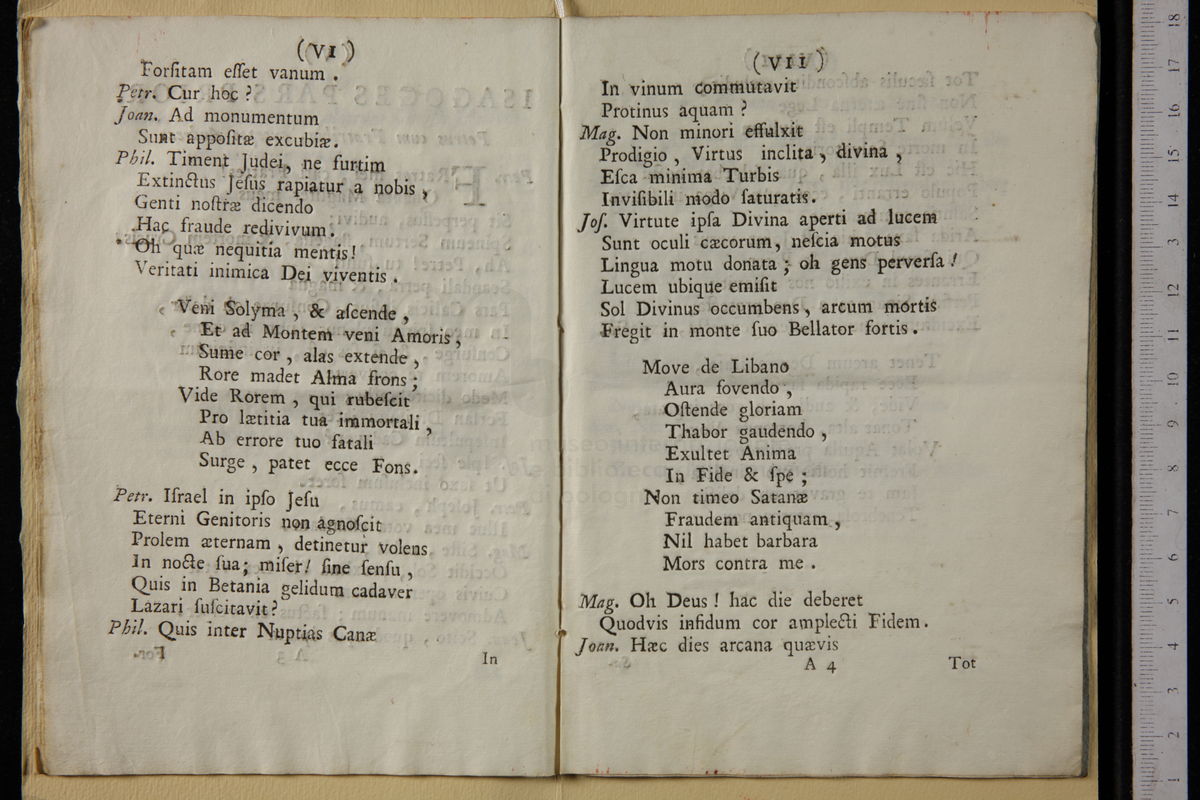 (VI)
Forſitam eſſet vanum .
Petr. Cur hoc ?
Joan. Ad monumentum
Sunt appoſitæ excubiæ.
Phil. Timent Judei, ne furtim
Extinctus Jeſus rapiatur a nobis ,
Genti noſtræ dicendo
Hac fraude redivivum.
Oh quæ nequitia mentis!
Veritati inimica Dei viventis .
Veni Solyma , & aſcende ,
Et ad Montem veni Amoris ,
Sume cor , alas extende ,
Rore madet Alma frons ;
Vide Rorem , qui rubeſcit
Pro lætitia tua immortali ,
Ab errore tuo fatali
Surge , patet ecce Fons.
Petr. Iſrael in ipſo Jeſu
Eterni Genitoris non agnoſcit
Prolem æternam , detinetur volens
In nocte ſua; miſer! ſine ſenſu ,
Quis in Betania gelidum cadaver
Lazari ſuſcitavit?
Phil. Quis inter Nuptias Canæ
In
(VII)
In vinum commutavit
Protinus aquam ?
Mag. Non minori effulxit
Prodigio , Virtus inclita , divina ,
Eſca minima Turbis
Inviſibili modo ſaturatis.
Joſ. Virtute ipſa Divina aperti ad lucem
Sunt oculi cæcorum, neſcia motus
Lingua motu donata ; oh gens perverſa !
Lucem ubique emiſit
Sol Divinus occumbens , arcum mortis
Fregit in monte ſuo Bellator fortis .
Move de Libano
Aura fovendo ,
Oſtende gloriam
Thabor gaudendo ,
Exultet Anima
In Fide & ſpe ;
Non timeo Satanæ
Fraudem antiquam ,
Nil habet barbara
Mors contra me .
Mag. Oh Deus ! hac die deberet
Quodvis infidum cor amplecti Fidem.
Joan. Hæc dies arcana quævis
A 4
Tot
18
17
16
15
14
13
12
11
10
9
8
7
6
5
4
3
2
1